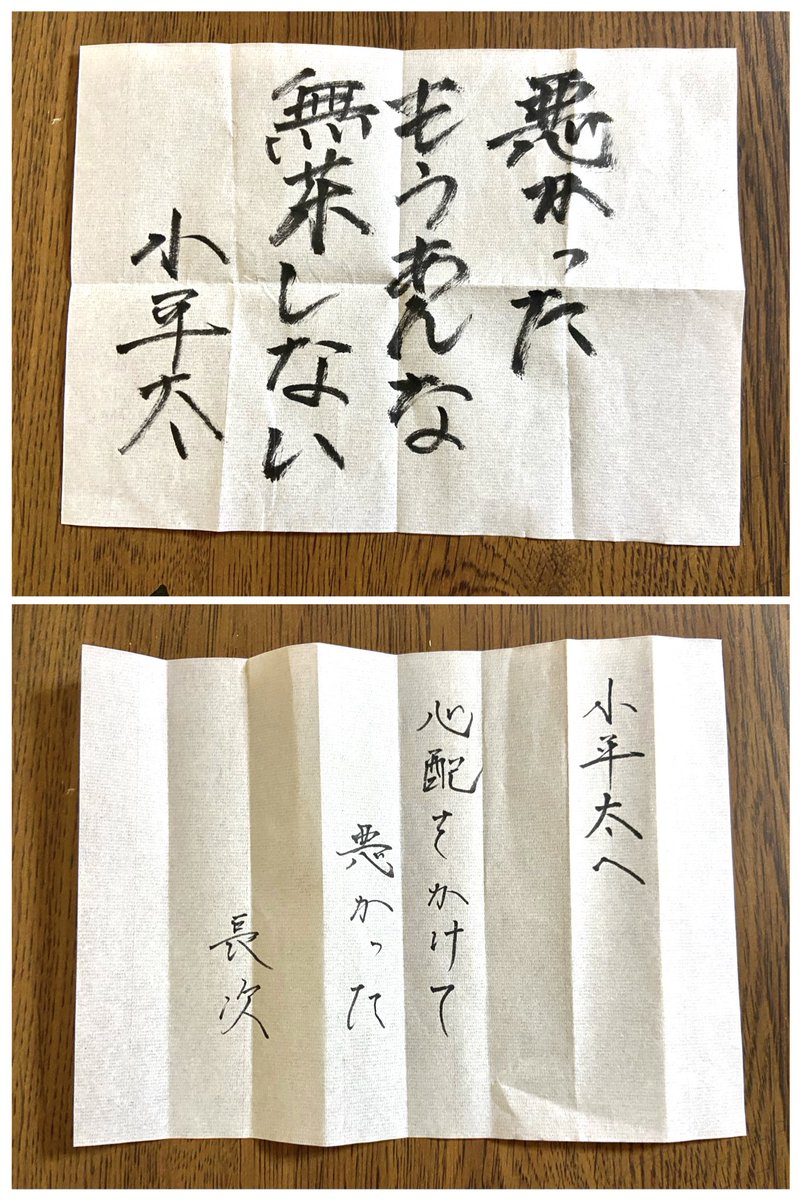 悪かった
もうあんな
無茶しない
小平太
小平太へ
心配をかけて
悪かった
長次